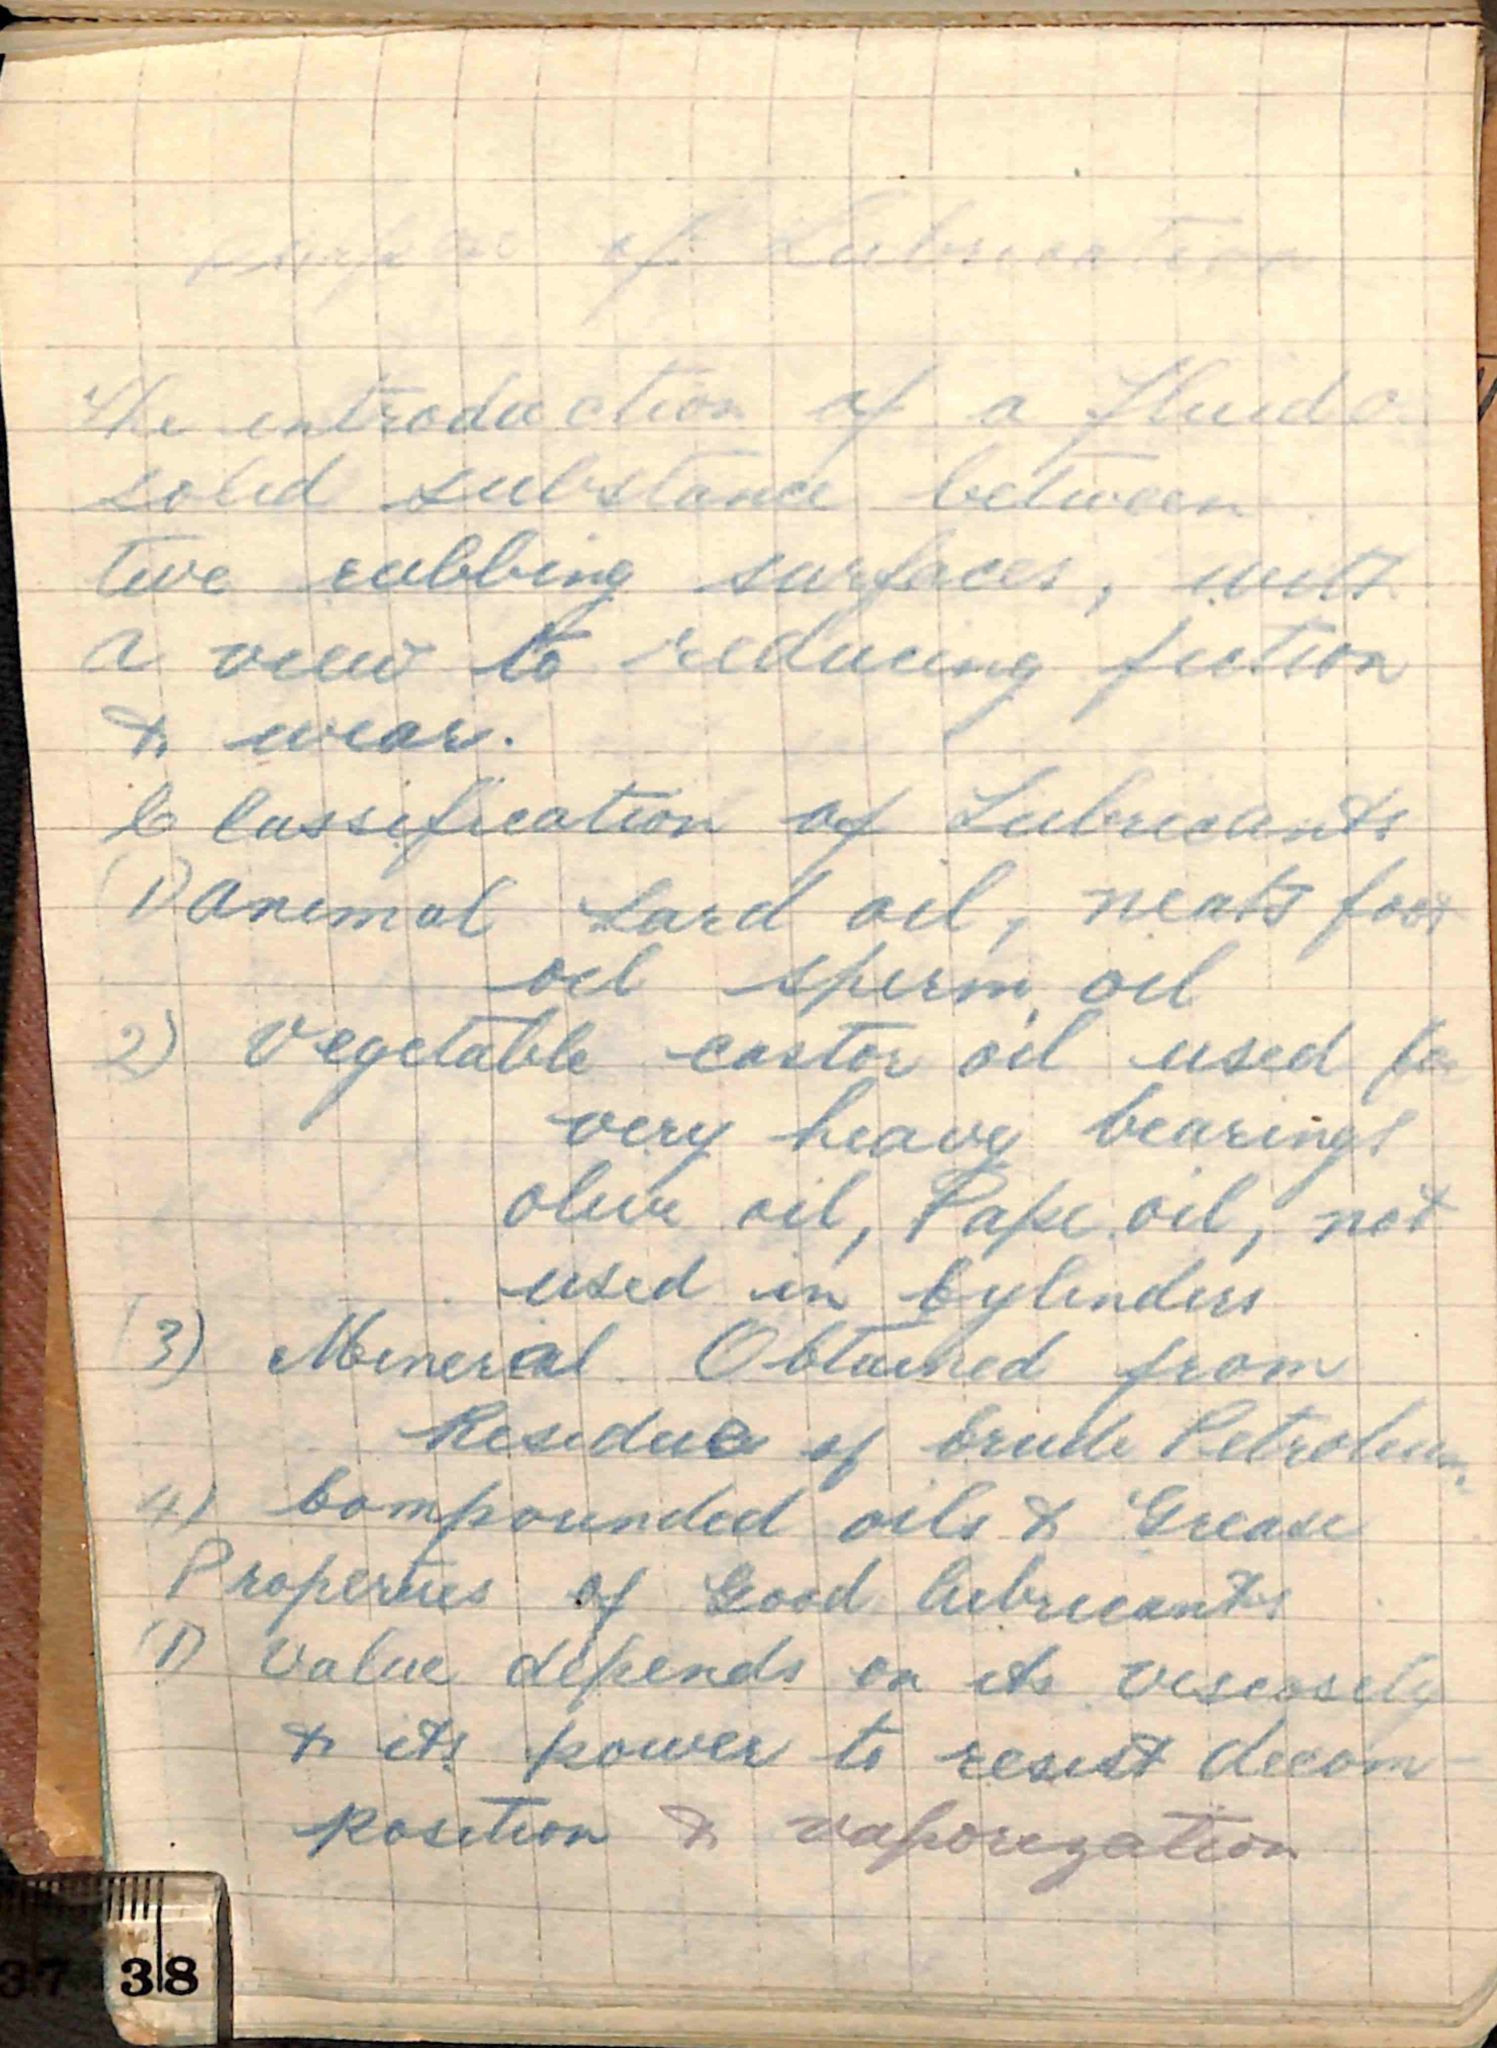 Purpose of Lubrication
The introduction of a fluid o
solid substance between
two rubbing surfaces, with
a view to reducing fiction
& wear.
Classification of Lubricants
(1) Animal Lard oil, neats foot
oil sperm oil
2) Vegetable castor oil used fo
very heavy bearings
olive oil, Rape oil, not
used in Cylinders
(3) Mineral Obtained from
Residue of Crude Petroleum
4) Compounded oils & Grease
Properties of Good lubricants
(1) Value depends on its viscosity
& its power to resist decom-
position & vaporization
37 38